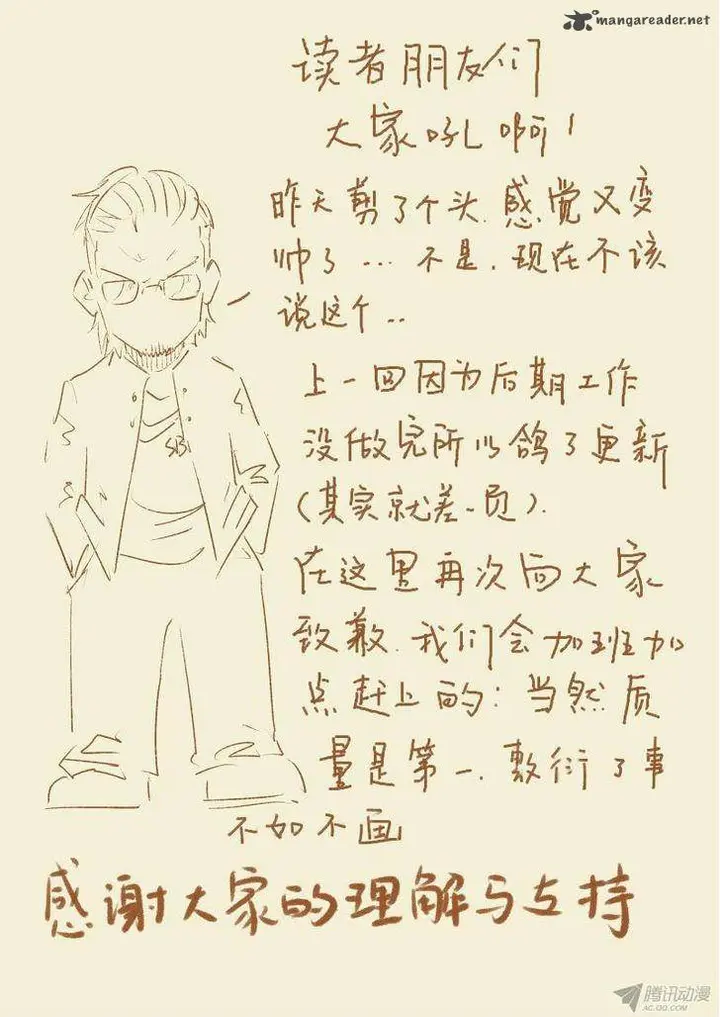 mangareader.net
读者朋友们
大家吼啊!
昨天剪了个头.感觉又变
帅了... 不是.现在不该
说这个..
上一回因为后期工作
没做完所以鸽了更新
(其实就差一页).
在这里再次向大家
致歉.我们会加班加
点赶上的:当然质
量是第一.敷衍了事
不如不画
感谢大家的理解与支持
SB
腾讯动漫
AC.QQ.COM